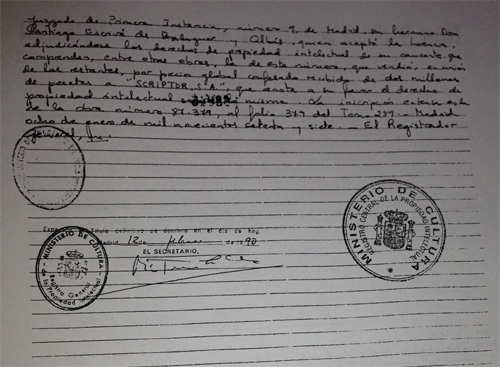 Juzgado de Primera Instancia, número 9, de Madrid, su hermano Don
Santiago Escrivá de Balaguer y Albás, quien aceptó la herencia
adjudicándose los derechos de propiedad intelectual de su causante que
comprenden, entre otras obras, la de este número, que vendió, en unión
de las restantes, por precio global confesado recibido de dos millones
de pesetas a "SCRIPTOR, S.A.", que anota a su favor el derecho de
propiedad intelectual misma. La inscripción extensa es la
de la obra número 87.379, al folio 349 del Tomo 239. Madrid
ocho de enero de mil novecientos setenta y siete. El Registrador
General,
Título definitivo de dominio en el día de hoy
Madrid, 12 de febrero de 1990
EL SECRETARIO,
MINISTERIO DE CULTURA
Registro General
de la Propiedad Intelectual
MINISTERIO DE CULTURA
REGISTRO CENTRAL DE LA PROPIEDAD INTELECTUAL